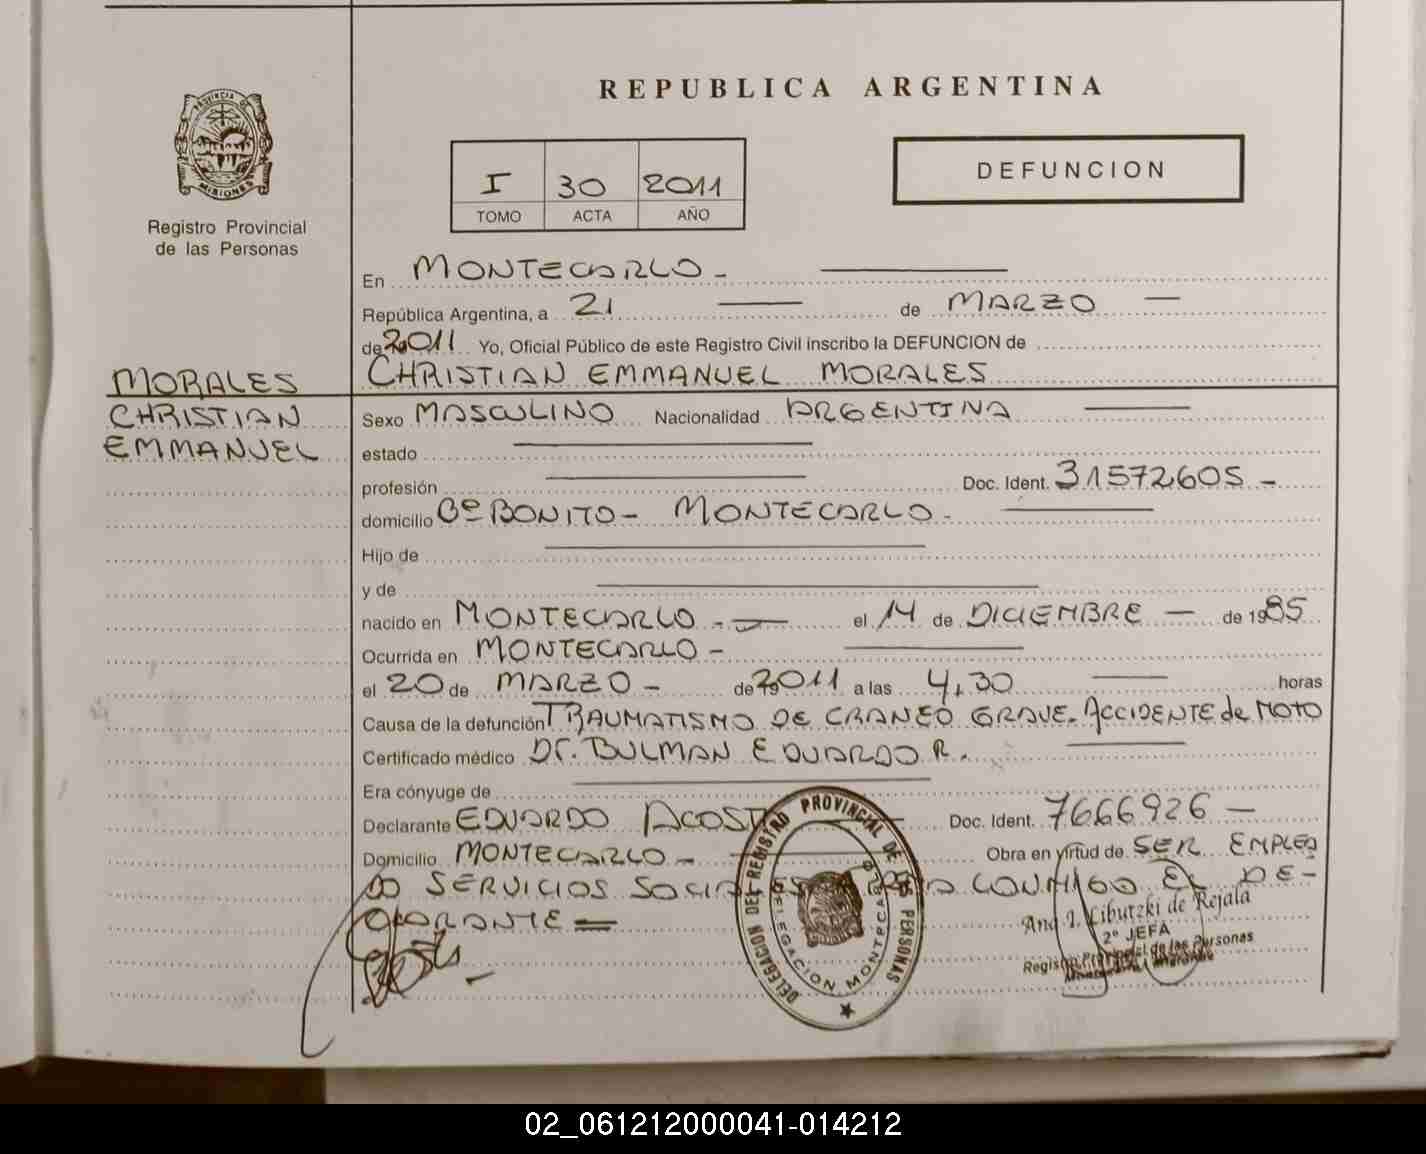 REPUBLICA ARGENTINA
PROVINCIA DE
MISIONES
Registro Provincial
de las Personas
I 30 2011
TOMO ACTA AÑO
DEFUNCION
En MONTECARLO -
República Argentina, a 21 de MARZO
de 2011 Yo, Oficial Público de este Registro Civil inscribo la DEFUNCION de
CHRISTIAN EMMANUEL MORALES
MORALES
CHRISTIAN
EMMANUEL
Sexo MASCULINO Nacionalidad ARGENTINA
estado
profesión Doc. Ident. 31572605 -
domicilio Bº BONITO - MONTECARLO -
Hijo de
y de
nacido en MONTECARLO - el 14 de DICIEMBRE - de 1985
Ocurrida en MONTECARLO -
el 20 de MARZO - de 2011 a las 4,30 horas
Causa de la defunción TRAUMATISMO DE CRANEO GRAVE. ACCIDENTE de MOTO
Certificado médico Dr. BULMAN EDUARDO R.
Era cónyuge de
Declarante EDUARDO ACOSTA Doc. Ident. 7666926 -
Domicilio MONTECARLO - Obra en virtud de SER EMPLEA
DO SERVICIOS SOCIALES CONMIGO EL DE-
CLARANTE =
DELEGACION DEL REGISTRO PROVINCIAL DE LAS PERSONAS
DELEGACION MONTECARLO
Ana I. Liburzki de Rejala
2º JEFA
Registro Provincial de las Personas
02_061212000041-014212